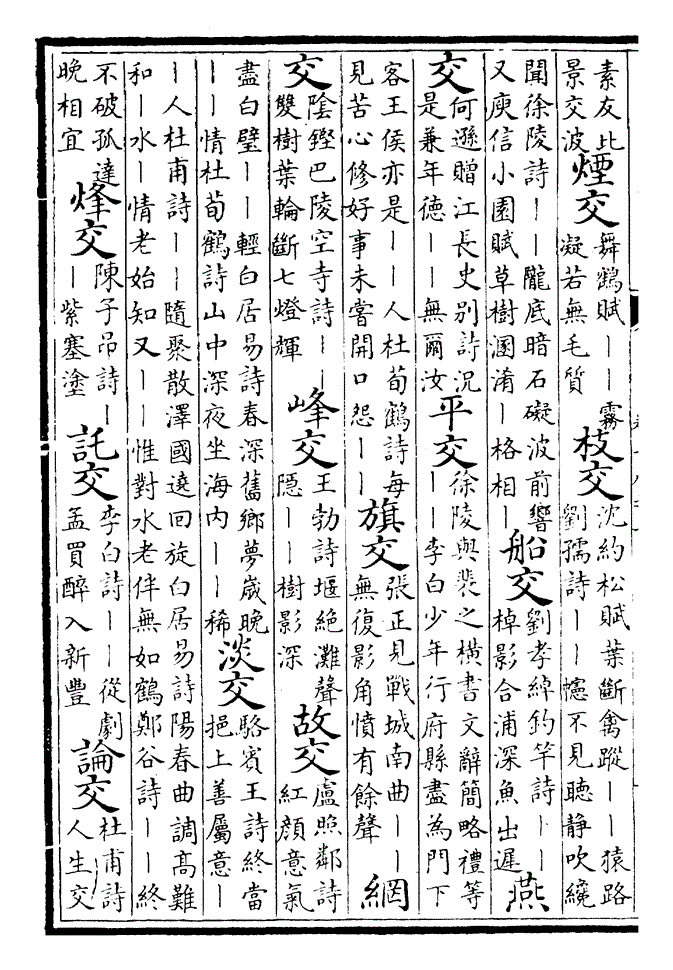 素友比景交波煙交舞鶴賦丨丨霧凝若無毛質枝交沈約松賦葉斷禽蹤丨丨猿路劉孺詩丨丨幰不見聽靜吹纔
聞徐陵詩丨丨隴底暗石礙波前響又庾信小園賦草樹溷淆丨格相丨船交劉孝綽釣竿詩丨丨棹影合浦深魚出遲燕
交何遜贈江長史別詩況是兼年德丨丨無爾汝平交徐陵與裴之橫書文辭簡略禮等丨丨李白少年行府縣盡為門下
客王侯亦是丨丨人杜荀鶴詩每見苦心修好事未嘗開口怨丨丨旗交張正見戰城南曲丨丨無復影角憤有餘聲網
交陰鏗巴陵空寺詩丨丨雙樹葉輪斷七燈輝峰交王勃詩堰絕灘聲隠丨丨樹影深故交盧照鄰詩紅顔意氣
盡白璧丨丨輕白居易詩春深舊鄉夢歲晚丨丨情杜荀鶴詩山中深夜坐海内丨丨稀淡交駱賓王詩終當挹上善屬意丨
丨人杜甫詩丨丨隨聚散澤國遶回旋白居易詩陽春曲調高難和丨水丨情老始知又丨丨惟對水老伴無如鶴鄭谷詩丨丨終
不破孤達晚相宜烽交陳子昂詩丨丨紫塞塗託交李白詩丨丨從劇孟買醉入新豐論交杜甫詩人生交